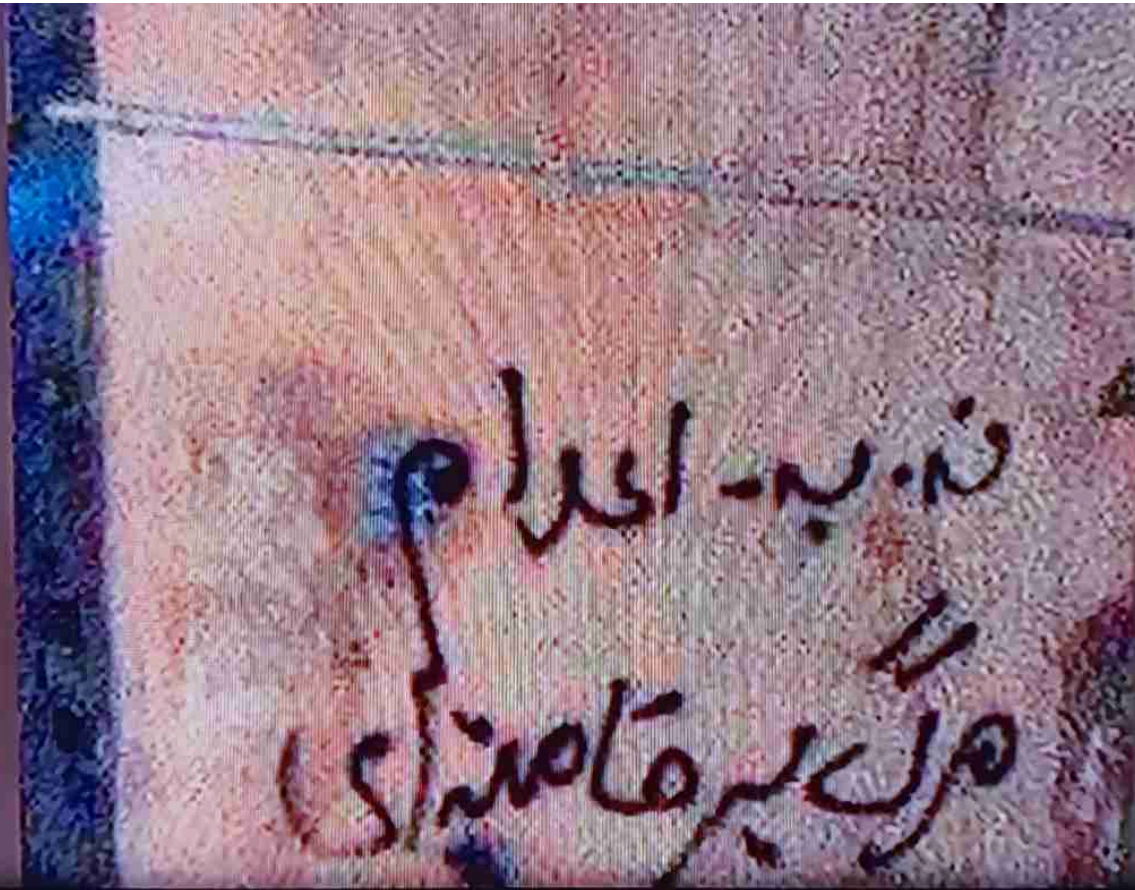 نه به اعدام
مرگ بر خامنه ای